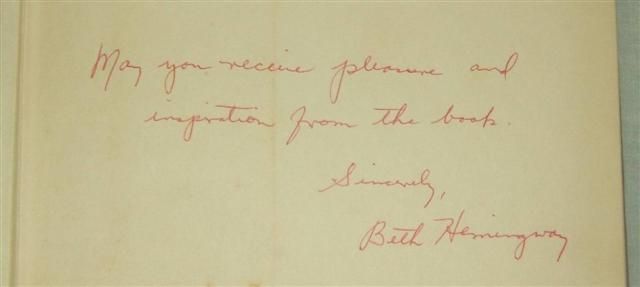 May you receive pleasure and
inspiration from the book.
Sincerely,
Beth Hemingway